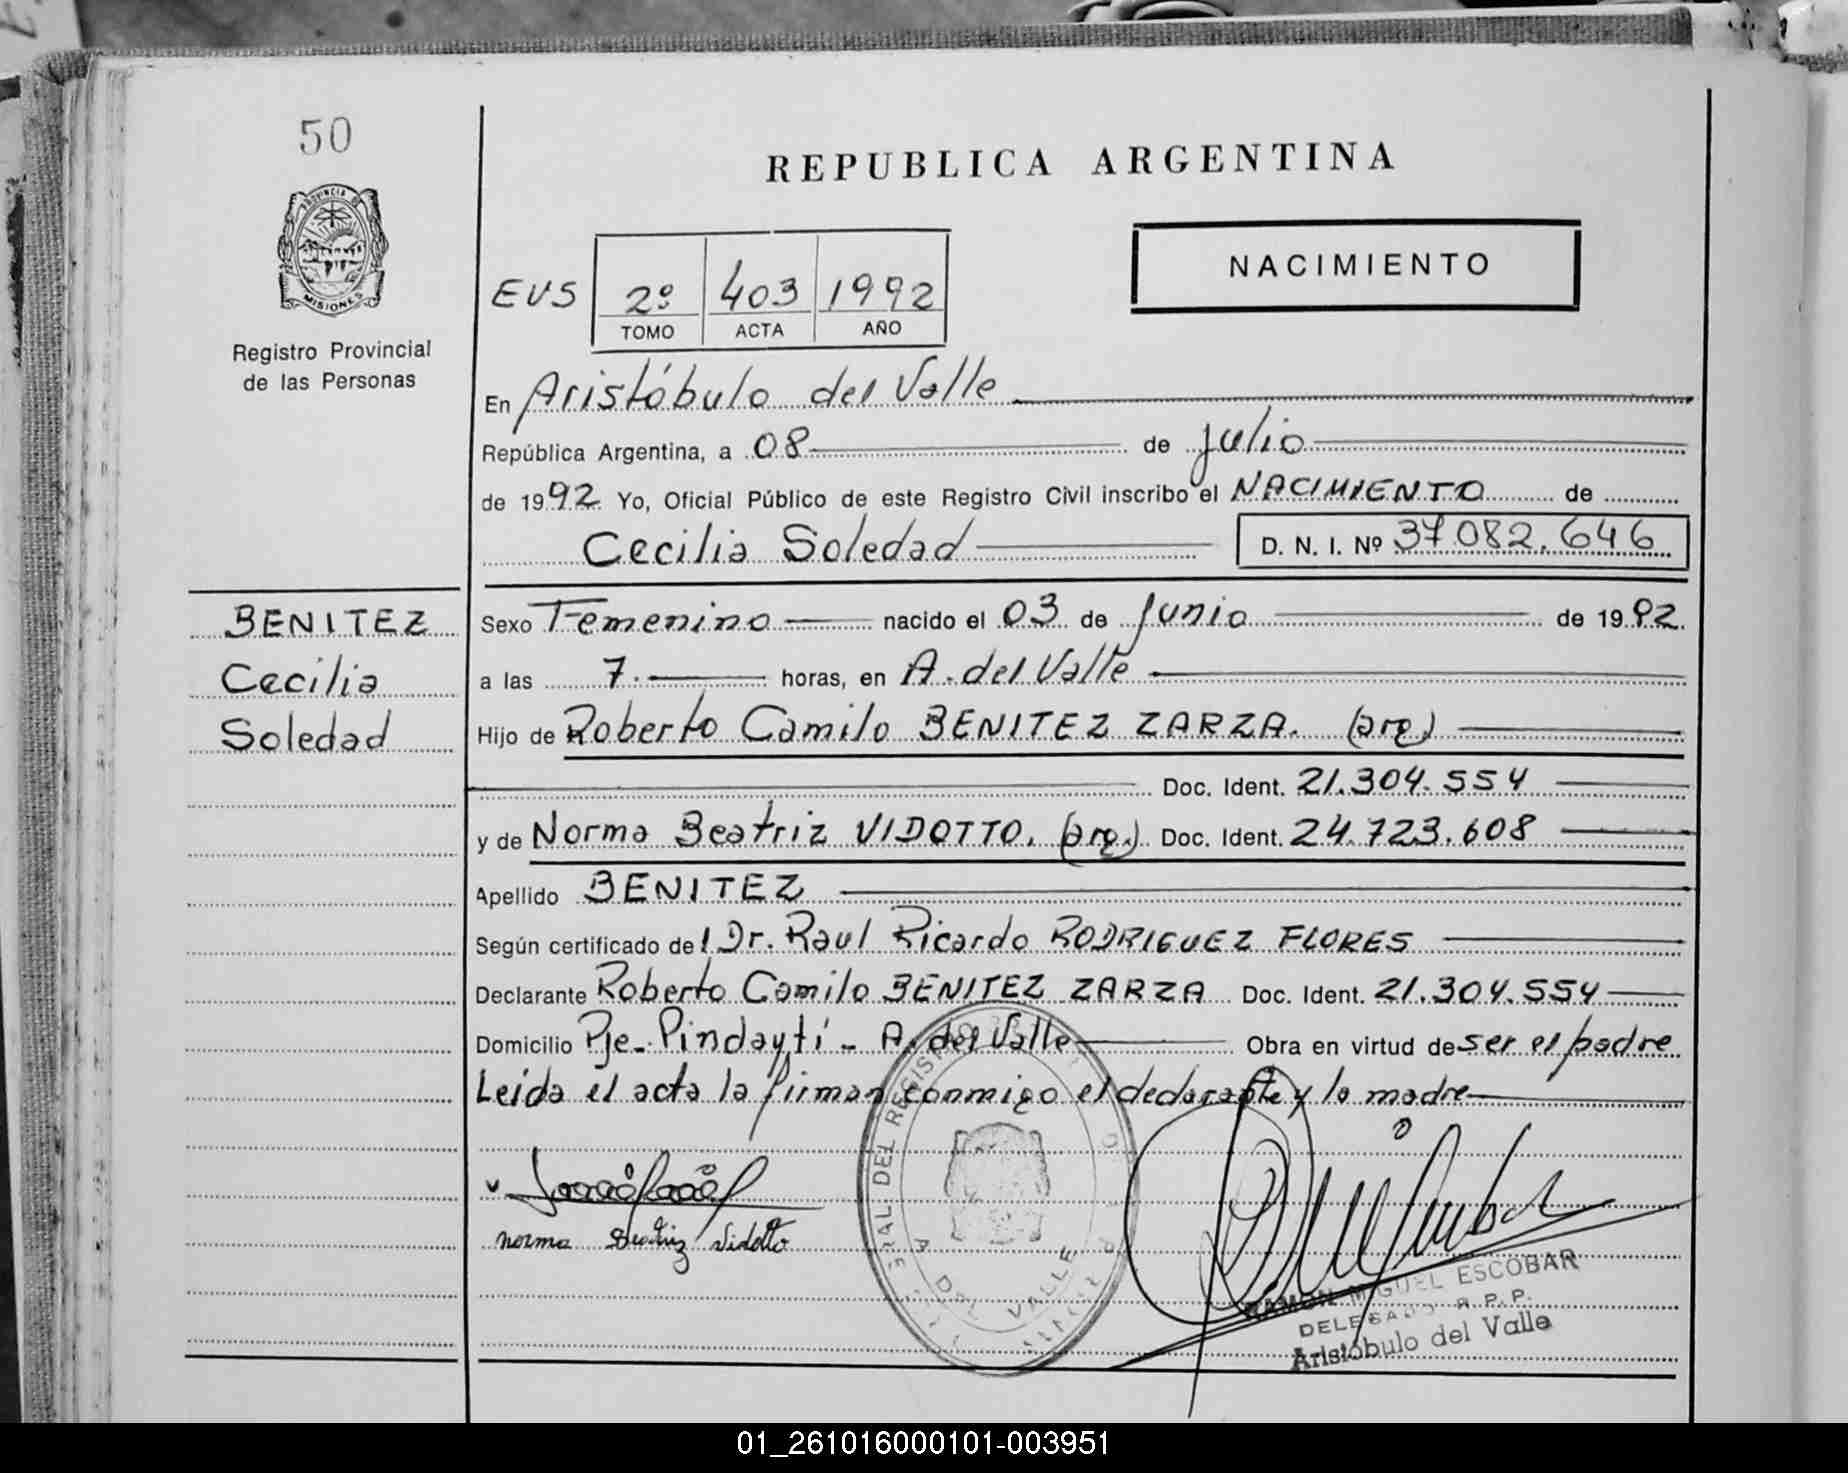 50
PROVINCIA DE
MISIONES
Registro Provincial
de las Personas
REPUBLICA ARGENTINA
NACIMIENTO
EVS 2º 403 1992
TOMO ACTA AÑO
En Aristóbulo del Valle
República Argentina, a 08 de Julio
de 1992 Yo, Oficial Público de este Registro Civil inscribo el NACIMIENTO de
Cecilia Soledad D. N. I. Nº 37.082.646
BENITEZ
Cecilia
Soledad
Sexo Femenino nacido el 03 de Junio de 1992.
a las 7. horas, en A. del Valle
Hijo de Roberto Camilo BENITEZ ZARZA. (arg)
Doc. Ident. 21.304.554
y de Norma Beatriz VIDOTTO. (arg.) Doc. Ident. 24.723.608
Apellido BENITEZ
Según certificado del Dr. Raul Ricardo RODRIGUEZ FLORES
Declarante Roberto Camilo BENITEZ ZARZA Doc. Ident. 21.304.554
Domicilio Pje. Pindaytí - A. del Valle Obra en virtud de ser el padre
Leida el acta la firman conmigo el declarante y la madre
norma Beatriz Vidotto
DEL REGISTRO
A DEL VALLE
RAMON MIGUEL ESCOBAR
DELEGADO R.P.P.
Aristóbulo del Valle
01_261016000101-003951